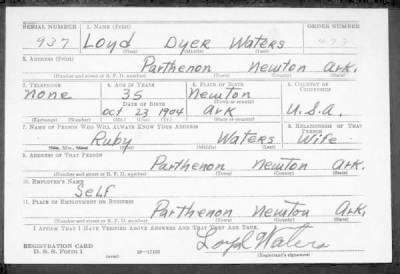 SERIAL NUMBER 1. NAME (Print) ORDER NUMBER
937 Loyd Dyer Waters
(First) (Middle) (Last)
2. ADDRESS (Print)
Parthenon Newton Ark.
(Number and street or R. F. D. number) (Town) (County) (State)
3. TELEPHONE 4. AGE IN YEARS 5. PLACE OF BIRTH 6. COUNTRY OF CITIZENSHIP
none 35 Newton
DATE OF BIRTH (Town or county)
Oct 23 1904 Ark U.S.A.
(Exchange) (Number) (Mo.) (Day) (Yr.) (State or country)
7. NAME OF PERSON WHO WILL ALWAYS KNOW YOUR ADDRESS 8. RELATIONSHIP OF THAT PERSON
Ruby Waters Wife
(Mr., Mrs., Miss) (First) (Middle) (Last)
9. ADDRESS OF THAT PERSON
Parthenon Newton Ark.
(Number and street or R. F. D. number) (Town) (County) (State)
10. EMPLOYER'S NAME
Self
11. PLACE OF EMPLOYMENT OR BUSINESS
Parthenon Newton Ark.
(Number and street or R. F. D. number) (Town) (County) (State)
I AFFIRM THAT I HAVE VERIFIED ABOVE ANSWERS AND THAT THEY ARE TRUE.
REGISTRATION CARD
D. S. S. Form 1 Loyd Waters
(Registrant's signature)